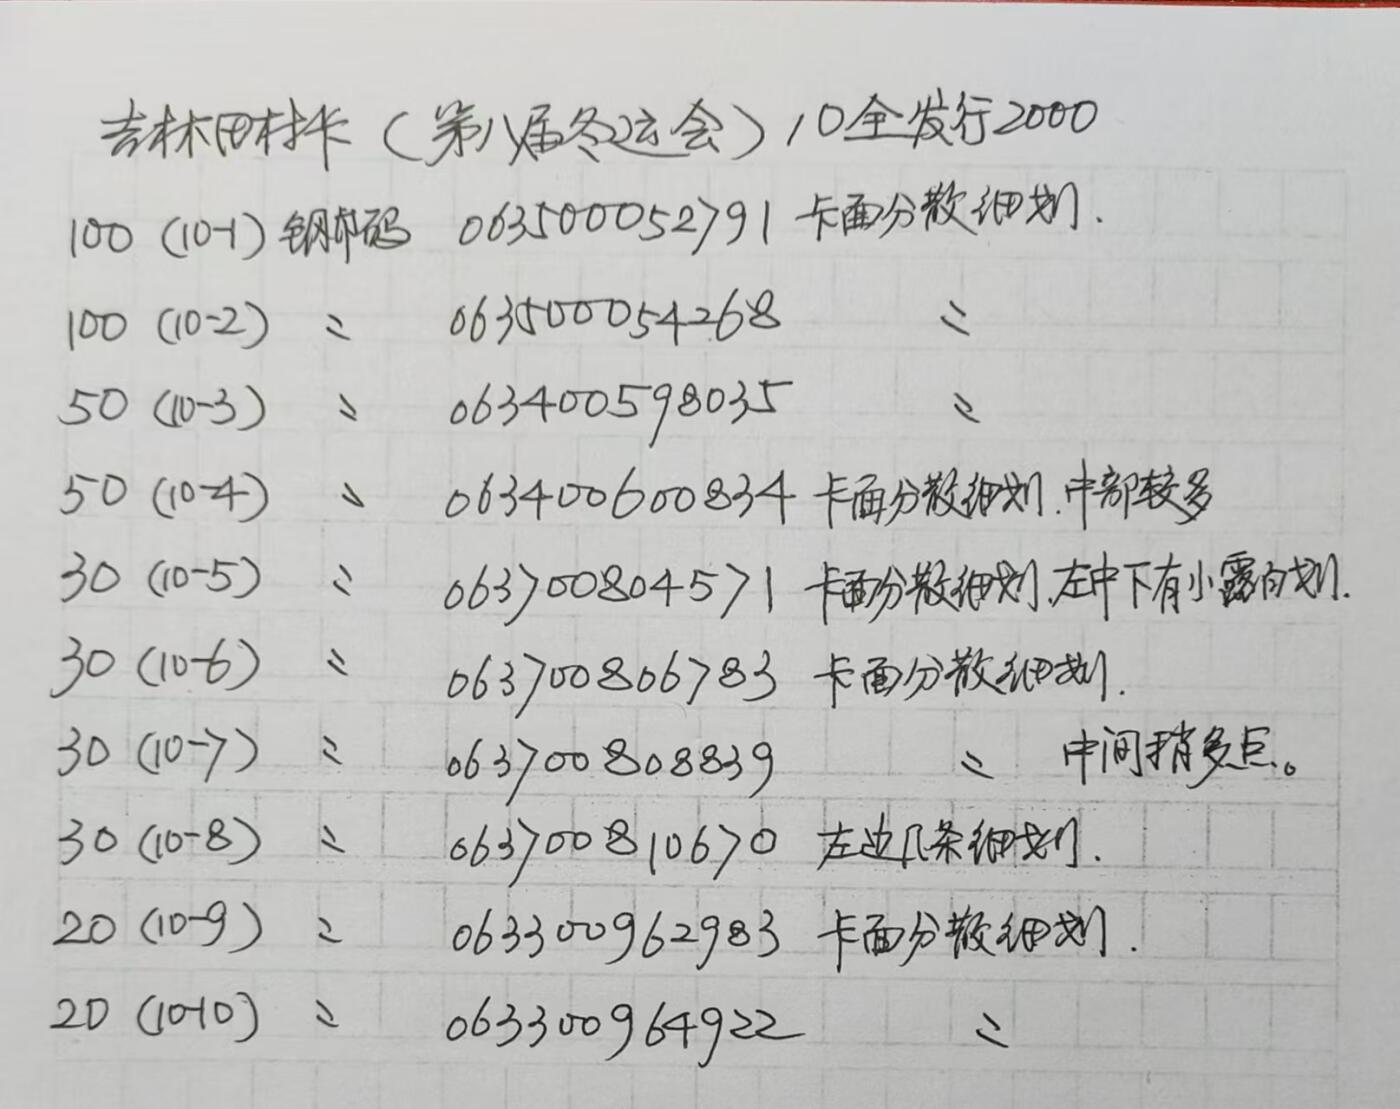 吉林田村卡（第八届冬运会）10全发行2000
100 (10-1) 钢印码 063500052791 卡面分散细划.
100 (10-2) 〃 063500054268 〃
50 (10-3) 〃 063400598035 〃
50 (10-4) 〃 063400600834 卡面分散细划.中部较多
30 (10-5) 〃 063700804571 卡面分散细划.左中下有小露白划.
30 (10-6) 〃 063700806783 卡面分散细划.
30 (10-7) 〃 063700808839 〃 中间稍多点。
30 (10-8) 〃 063700810670 左边几条细划.
20 (10-9) 〃 063300962983 卡面分散细划.
20 (10-10) 〃 063300964922 〃